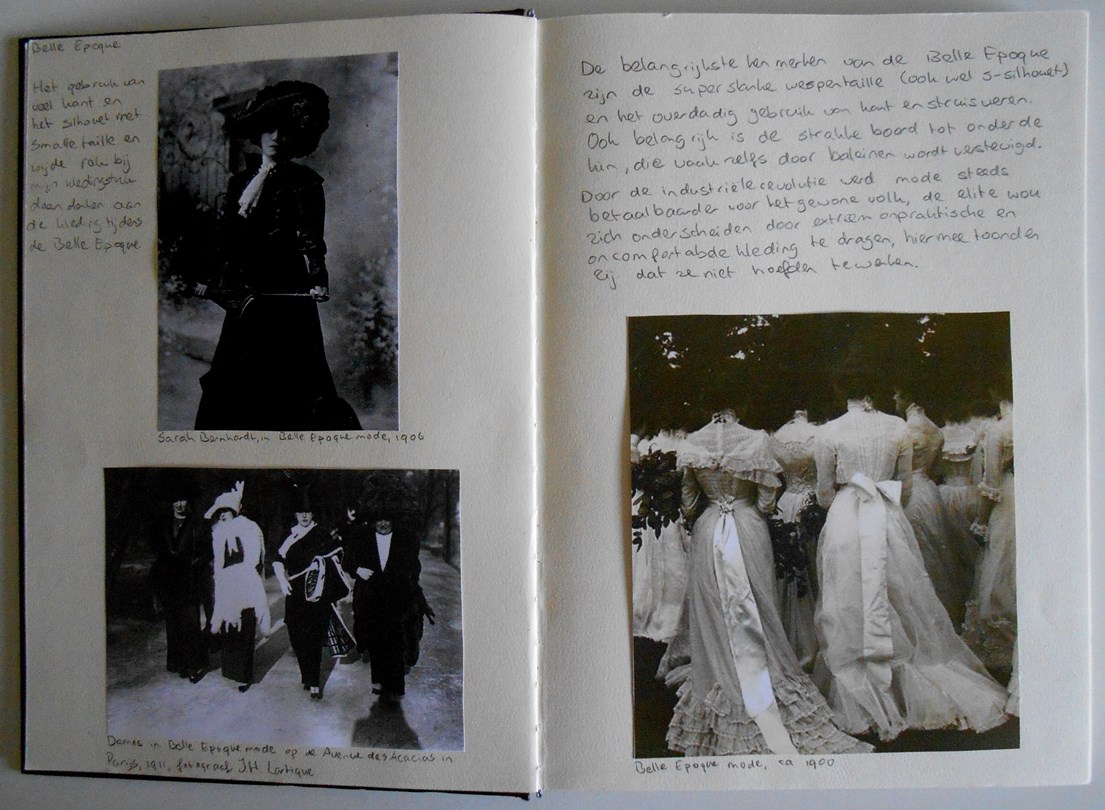 Belle Epoque
Het gebruik van
veel kant en
het silhouet met
smalle taille en
wijde rok bij
mijn kledingstuk
doen denken aan
de kleding tijdens
de Belle Epoque
Sarah Bernhardt, in Belle Epoque mode, 1906
Dames in Belle Epoque mode op de Avenue des Acacias in
Parijs, 1911, fotograaf J.H. Lartigue
De belangrijkste kenmerken van de Belle Epoque
zijn de super slanke wespentaille (ook wel S-silhouet)
en het overdadig gebruik van kant en struisveren.
Ook belangrijk is de strakke boord tot onder de
kin, die vaak zelfs door baleinen wordt verstevigd.
Door de industriële revolutie werd mode steeds
betaalbaarder voor het gewone volk, de elite wou
zich onderscheiden door extreem onpraktische en
oncomfortabele kleding te dragen, hiermee toonden
zij dat ze niet hoefden te werken.
Belle Epoque mode, ca 1900